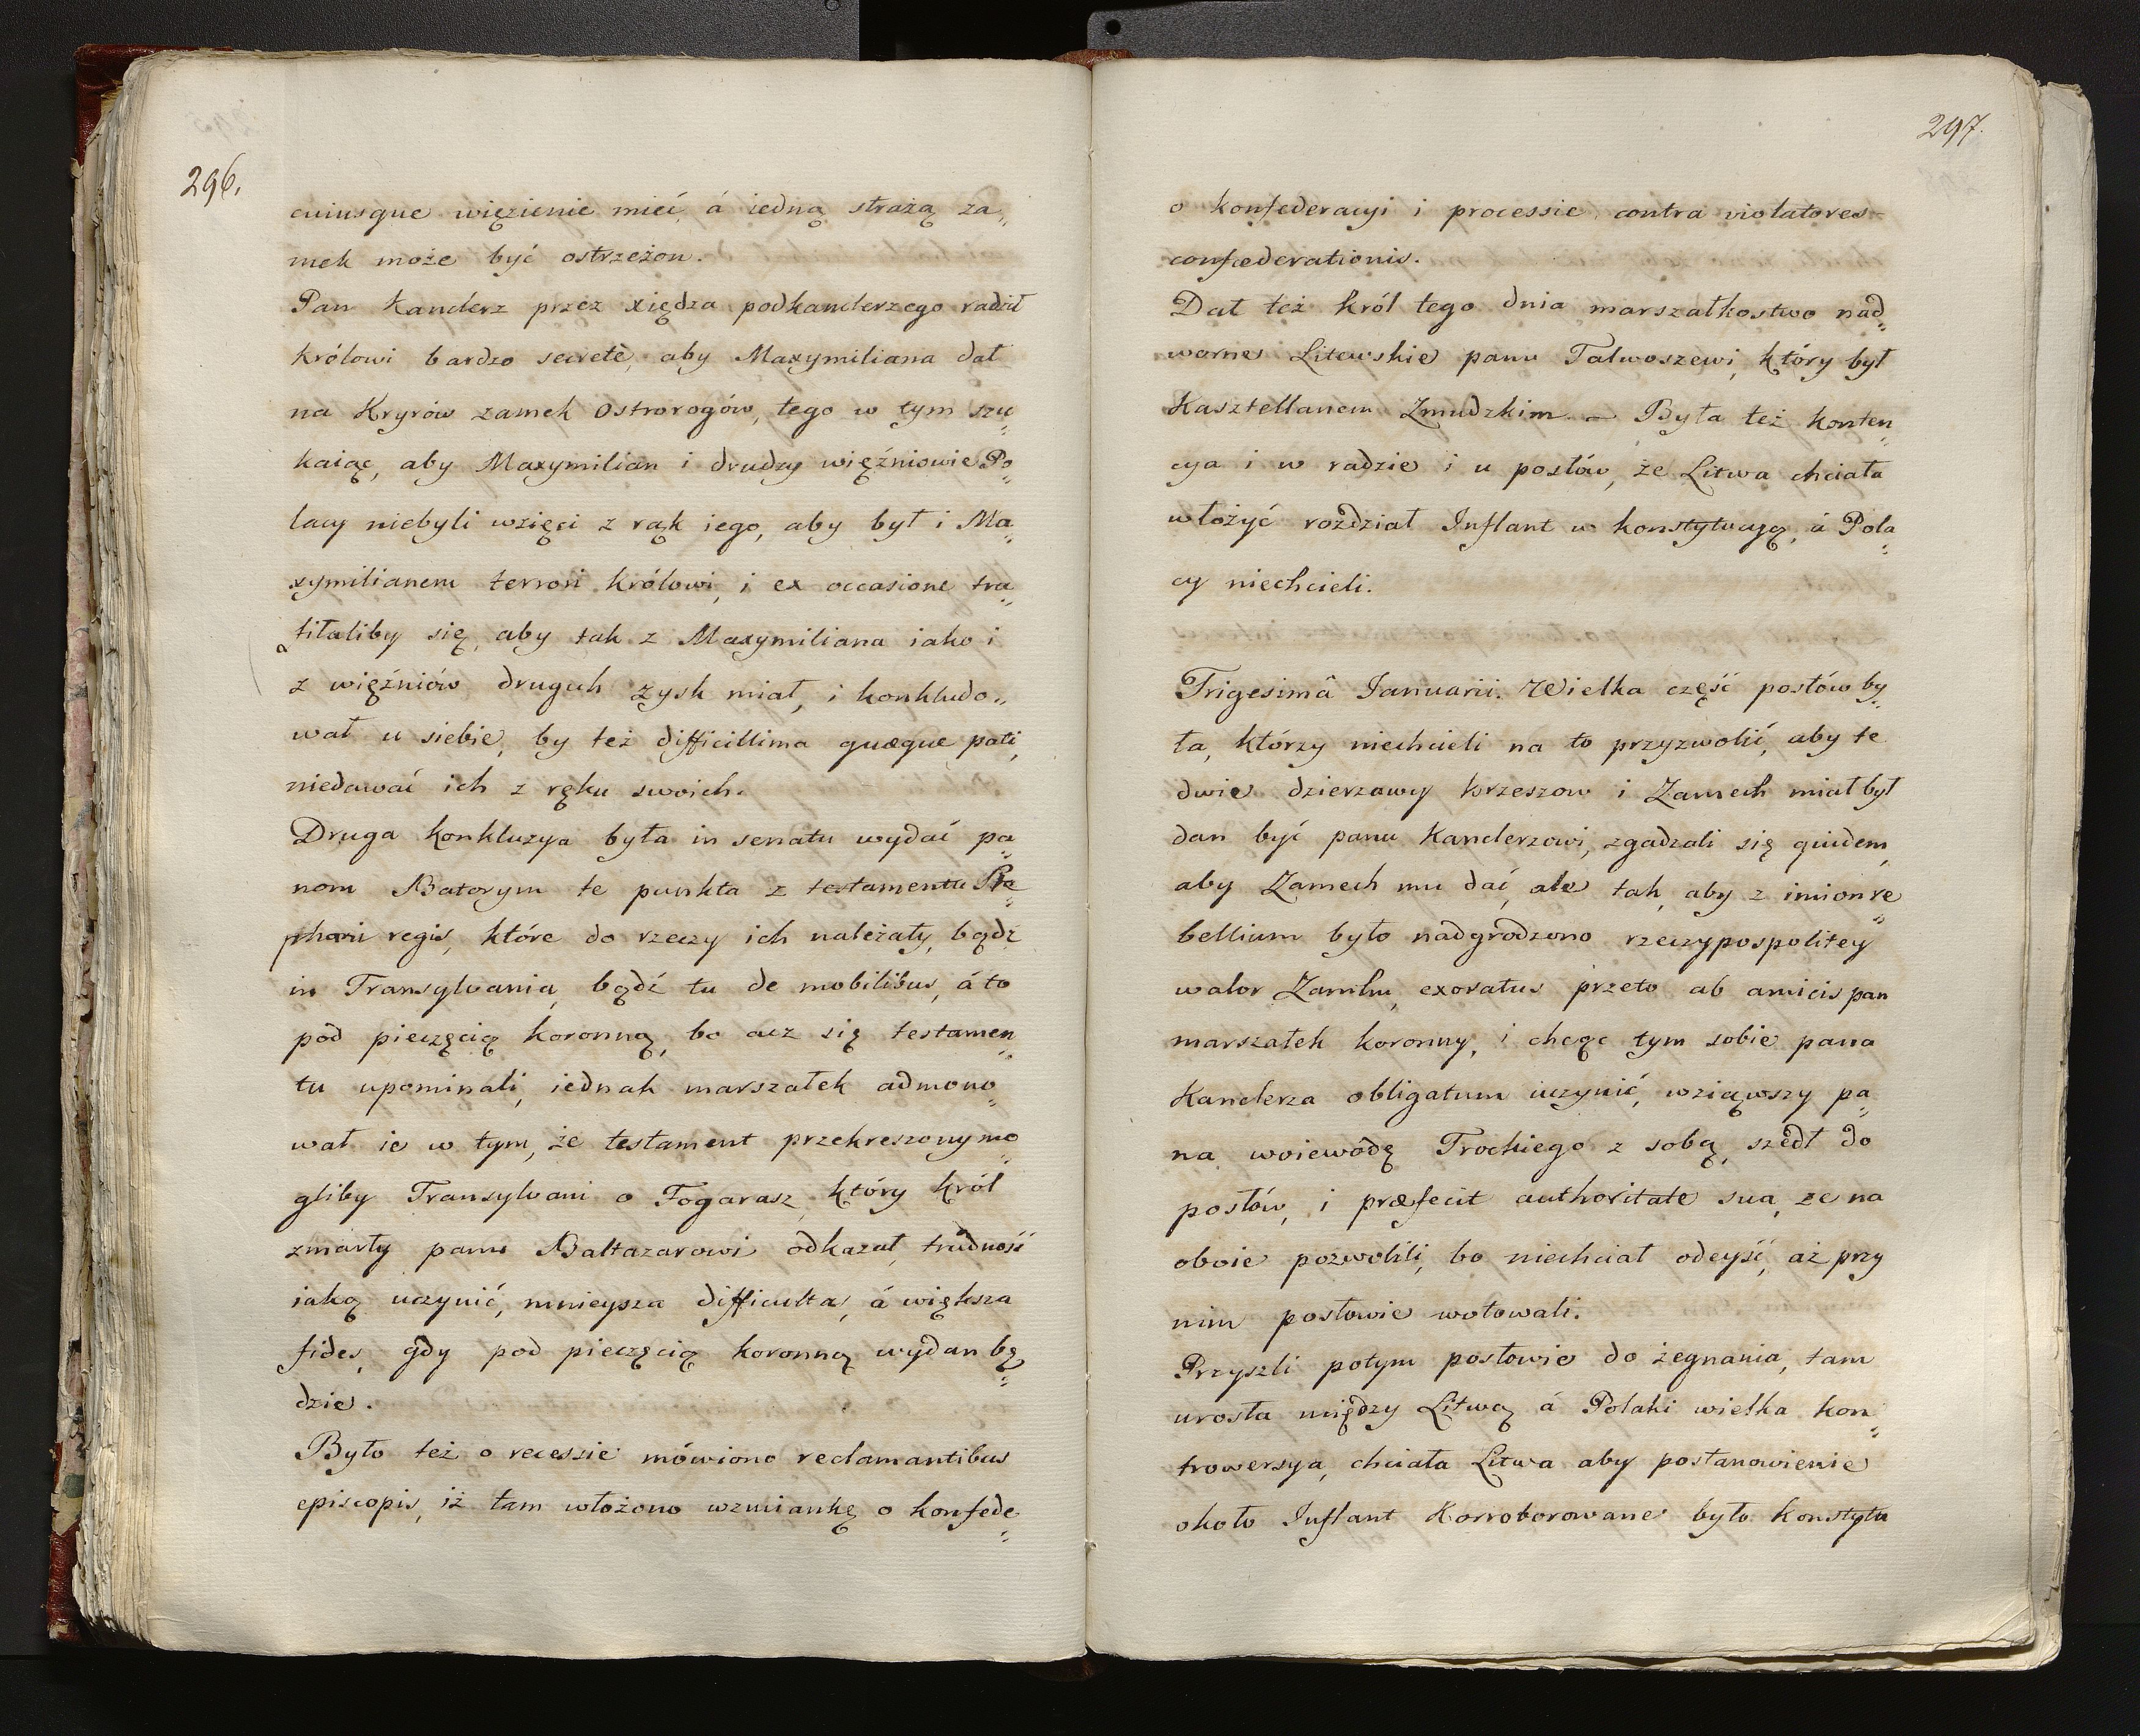 296.
cuiusque więzienie mieć, á iedną strażą za„
mek może być ostrzeżon.
Pan Kanclerz przez xiędza podkanclerzego radził
królowi bardzo secretè, aby Maxymiliana dał
na Kryrów zamek Ostrorogów, tego w tym szu„
kaiąc, aby Maxymilian i drudzy więźniowie Po„
lacy niebyli wzięci z rąk iego, aby był i Ma„
xymilianem terrori królowi, i ex occasione tra„
fiłaliby się, aby tak z Maxymiliana iako i
z więźniów drugich zysk miał, i konkludo„
wał u siebie, by też difficillima quæque pati,
niedawać ich z ręku swoich.
Druga konkluzya była in senatu wydać pa„
nom Batorym te punkta z testamentu Ste„
phani regis, które do rzeczy ich należały, bądź
in Transylvania, bądź tu de mobilibus, á to
pod pieczęcią koronną, bo acz się testamen„
tu upominali, iednak marszałek admono„
wał ie w tym, że testament przekreszony mo„
gliby Transylvani o Fogarasz, który król
zmarły panu Baltazarowi odkazał, trudność
iaką uczynić, mnieysza difficultas, á większa
fides, gdy pod pieczęcią koronną wydan bę„
dzie.
Było też o recessie mówiono reclamantibus
episcopis, iż tam włożono wzmiankę o konfede„
297.
o konfederacyi i processie contra violatores
confæderationis.
Dał też król tego dnia marszałkostwo nad„
worne Litewskie panu Talwoszewi, który był
Kasztellanem Zmudzkim. — Była też konten„
cya i w radzie i u posłów, że Litwa chciała
włożyć rozdział Inflant w konstytucyą, á Pola„
cy niechcieli.
Trigesimâ Ianuarii. Wielka część posłów by„
ła, którzy niechcieli na to przyzwolić, aby te
dwie dzierzawy Krzeszow i Zamech miał był
dan być panu Kanclerzowi, zgadzali się quidem,
aby Zamech mu dać, ale tak, aby z imion re„
bellium było nadgrodzono rzeczypospolitey
walor Zamchu, exoratus przeto ab amicis pan
marszałek koronny, i chcąc tym sobie pana
Kanclerza obligatum uczynić, wziąwszy pa„
na woiewodę Trockiego z sobą, szedł do
posłów, i præfecit authoritate sua, że na
oboie pozwolili, bo niechciał odeyść, aż przy
nim posłowie wotowali.
Przyszli potym posłowie do żegnania, tam
urosła między Litwą á Polaki wielka kon„
trowersya, chciała Litwa aby postanowienie
około Inflant korroborowane było konstytu